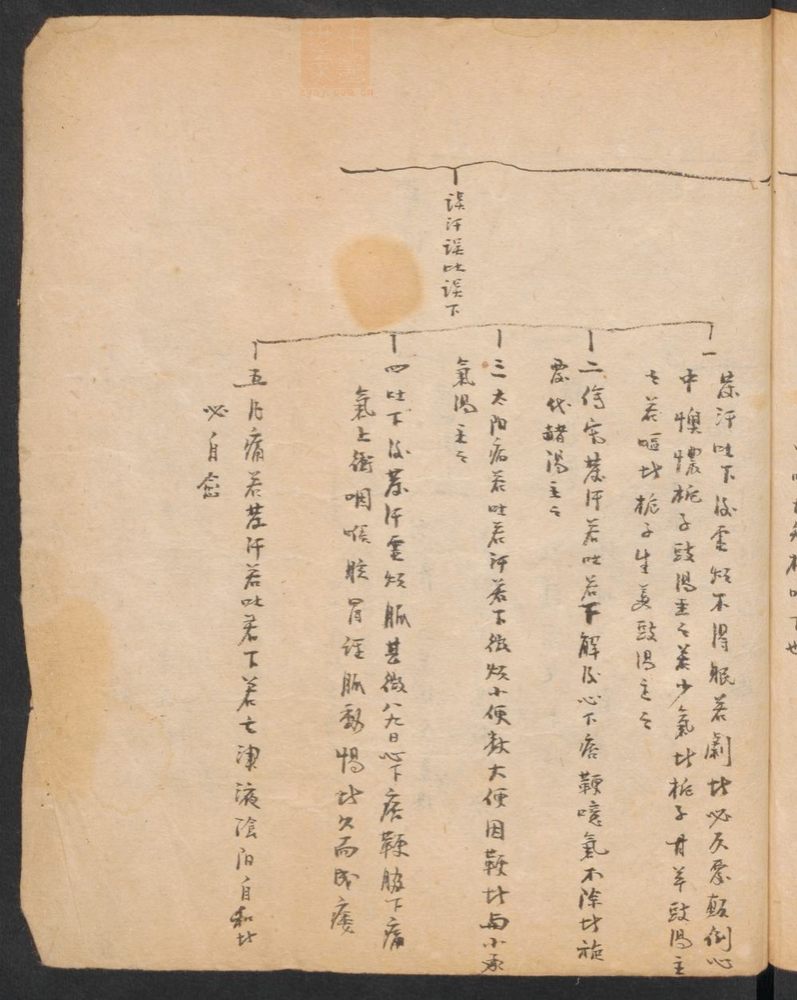 误汗误吐误下
一發汗吐下後虚煩不得眠若劇者必反覆顛倒心
中懊憹梔子豉湯主之若少氣者梔子甘草豉湯主
之若嘔者梔子生姜豉湯主之
二傷寒發汗若吐若下解後心下痞鞕噫氣不除者旋
覆代赭湯主之
三太阳病若吐若汗若下微煩小便数大便因鞕者与小承
氣湯主之
四吐下後發汗虚煩脈甚微八九日心下痞鞕脇下痛
氣上衝咽喉眩冒经脈動惕者久而成痿
五凡病若發汗若吐若下若亡津液陰阳自和者
必自愈